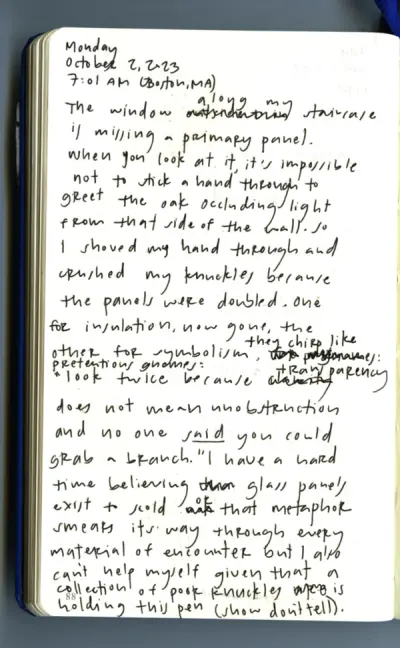 Monday
October 2, 2023
7:01 AM (Boston, MA)
The window along my staircase
is missing a primary panel.
When you look at it, it's impossible
not to stick a hand through to
greet the oak occluding light
from that side of the wall. So
I shoved my hand through and
crushed my knuckles because
the panels were doubled. One
for insulation, now gone, the
other for symbolism, they chirp like
pretentious gnomes:
"look twice because transparency
does not mean unobstruction
and no one said you could
grab a branch." I have a hard
time believing glass panels
exist to scold or that metaphor
smears its way through every
material of encounter but I also
can't help myself given that a
collection of poor knuckles is
holding this pen (show don't tell).
88